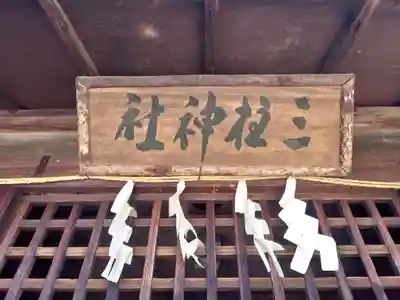 三柱神社